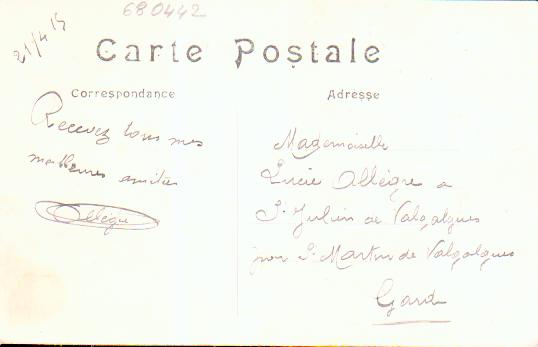 680442
21/4 15
Carte Postale
Correspondance
Adresse
Recevez tous mes
meilleures amitiés
Allègre
Mademoiselle
Lucie Allègre a
St Julien de Valgalgues
par St Martin de Valgalgues
Gard